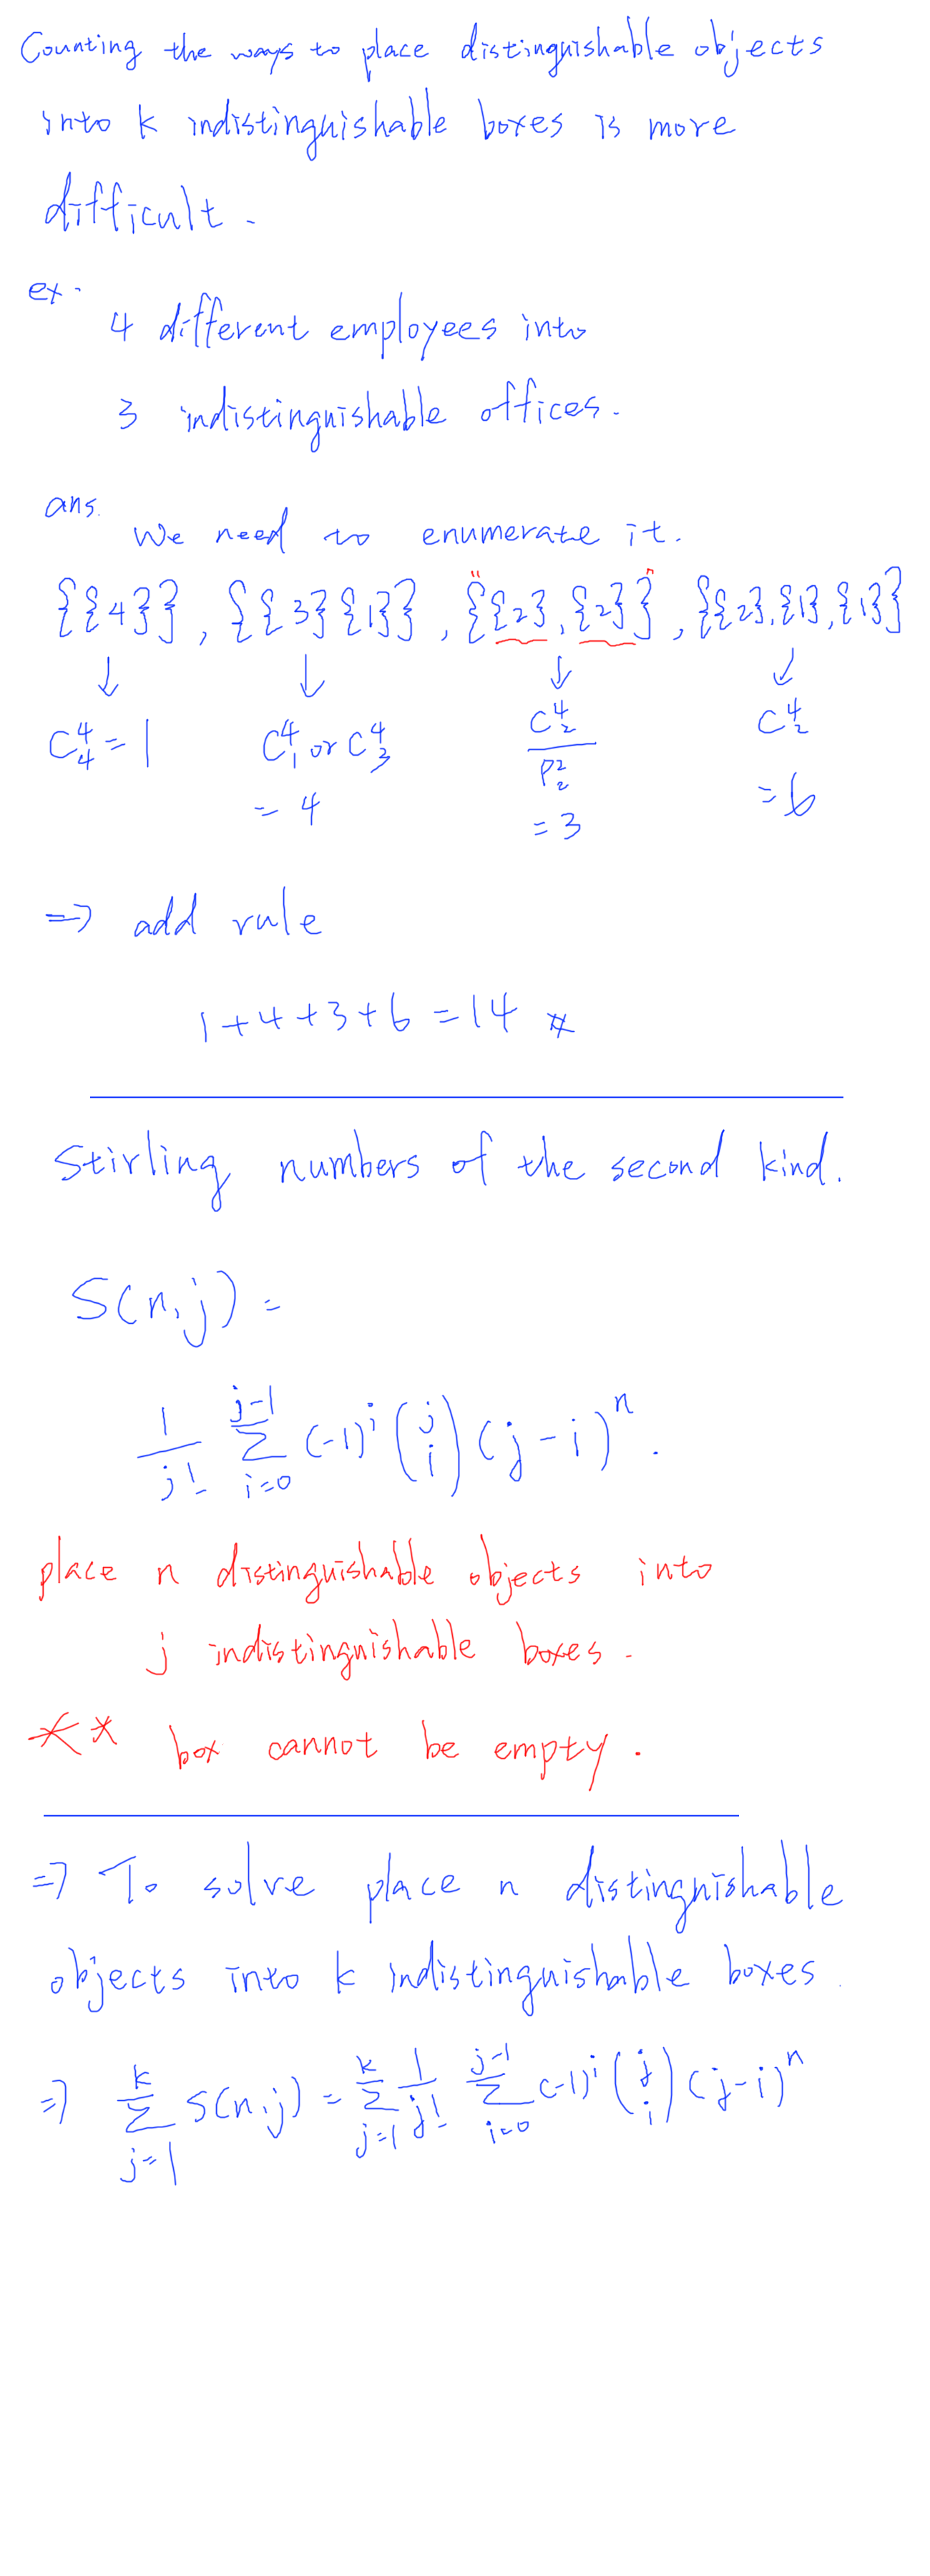 Counting the ways to place distinguishable objects
into k indistinguishable boxes is more
difficult.
ex.
4 different employees into
3 indistinguishable offices.
ans.
We need to enumerate it.
{{4}}, {{3}{1}}, "{{2},{2}}", {{2},{1},{1}}
↓ ↓ ↓ ↓
C⁴₄ = 1 C⁴₁ or C⁴₃ = 4 C⁴₂ / P²₂ = 3 C⁴₂ = 6
=> add rule
1+4+3+6=14 #
Stirling numbers of the second kind.
S(n,j) =
1/j! Σ_{i=0}^{j-1} (-1)^i (j i) (j-i)^n.
place n distinguishable objects into
j indistinguishable boxes.
** box cannot be empty.
=> To solve place n distinguishable
objects into k indistinguishable boxes.
=> Σ_{j=1}^{k} S(n,j) = Σ_{j=1}^{k} 1/j! Σ_{i=0}^{j-1} (-1)^i (j i) (j-i)^n